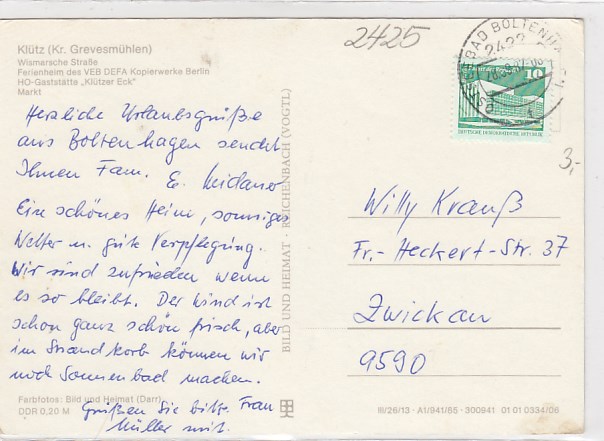 2425
Klütz (Kr. Grevesmühlen)
Wismarsche Straße
Ferienheim des VEB DEFA Kopierwerke Berlin
HO-Gaststätte „Klützer Eck"
Markt
OSTSEEBAD BOLTENHAGEN
2423
10
DEUTSCHE DEMOKRATISCHE REPUBLIK
3,-
Herzliche Urlaubsgrüße
aus Boltenhagen sendet
Ihnen Fam. E.
Ein schönes Heim, sonniges
Wetter u. gute Verpflegung.
Wir sind zufrieden wenn
es so bleibt. Der Wind ist
schon ganz schön frisch, aber
im Strandkorb können wir
noch Sonnenbad machen.
Grüßen Sie bitte Frau
Müller mit.
BILD UND HEIMAT · REICHENBACH (VOGTL)
Willy Krauß
Fr.-Heckert-Str. 37
Zwickau
9590
Farbfotos: Bild und Heimat (Darr)
DDR 0,20 M
III/26/13 · A1/941/85 · 300941 01 01 0334/06